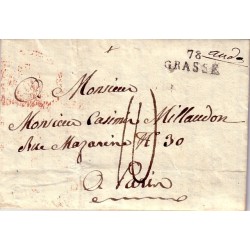 78
GRASSE
A
Monsieur
Monsieur Casimir Millaudon
Rue Mazarine N° 30
A Paris